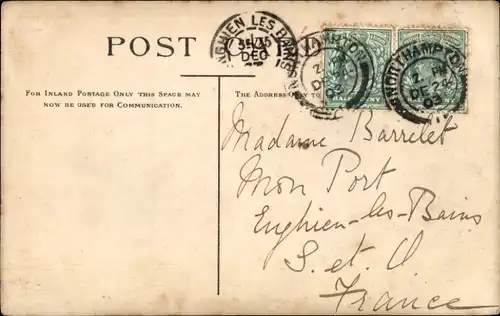 POST
ENGHIEN LES BAINS
DEC
NORTHAMPTON
DE
03
HALFPENNY
FOR INLAND POSTAGE ONLY THIS SPACE MAY
NOW BE USED FOR COMMUNICATION.
THE ADDRESS ONLY TO
Madame Barrelet
Mon Port
Enghien-les-Bains
S. et O.
France